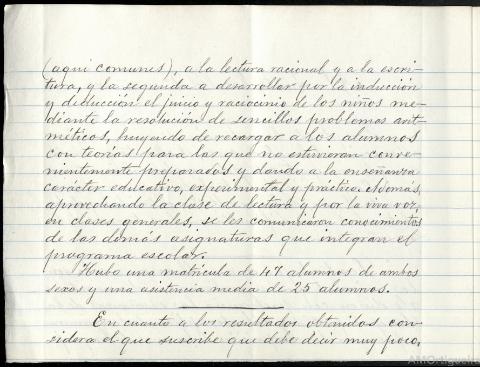 (aquí comunes), a la lectura racional y a la escri-
tura, y la segunda a desarrollar por la inducción
y deducción el juicio y raciocinio de los niños me-
diante la resolución de sencillos problemas arit-
méticos, huyendo de recargar a los alumnos
con teorías para las que no estuvieran conve-
nientemente preparados y dando a la enseñanza
carácter educativo, experimental y práctico. Además,
aprovechando la clase de lectura y por la viva voz,
en clases generales, se les comunicaron conocimientos
de las demás asignaturas que integran el
programa escolar.
Hubo una matrícula de 47 alumnos de ambos
sexos y una asistencia media de 25 alumnos.
En cuanto a los resultados obtenidos con-
sidera el que suscribe que debe decir muy poco,
AMOrtigueira